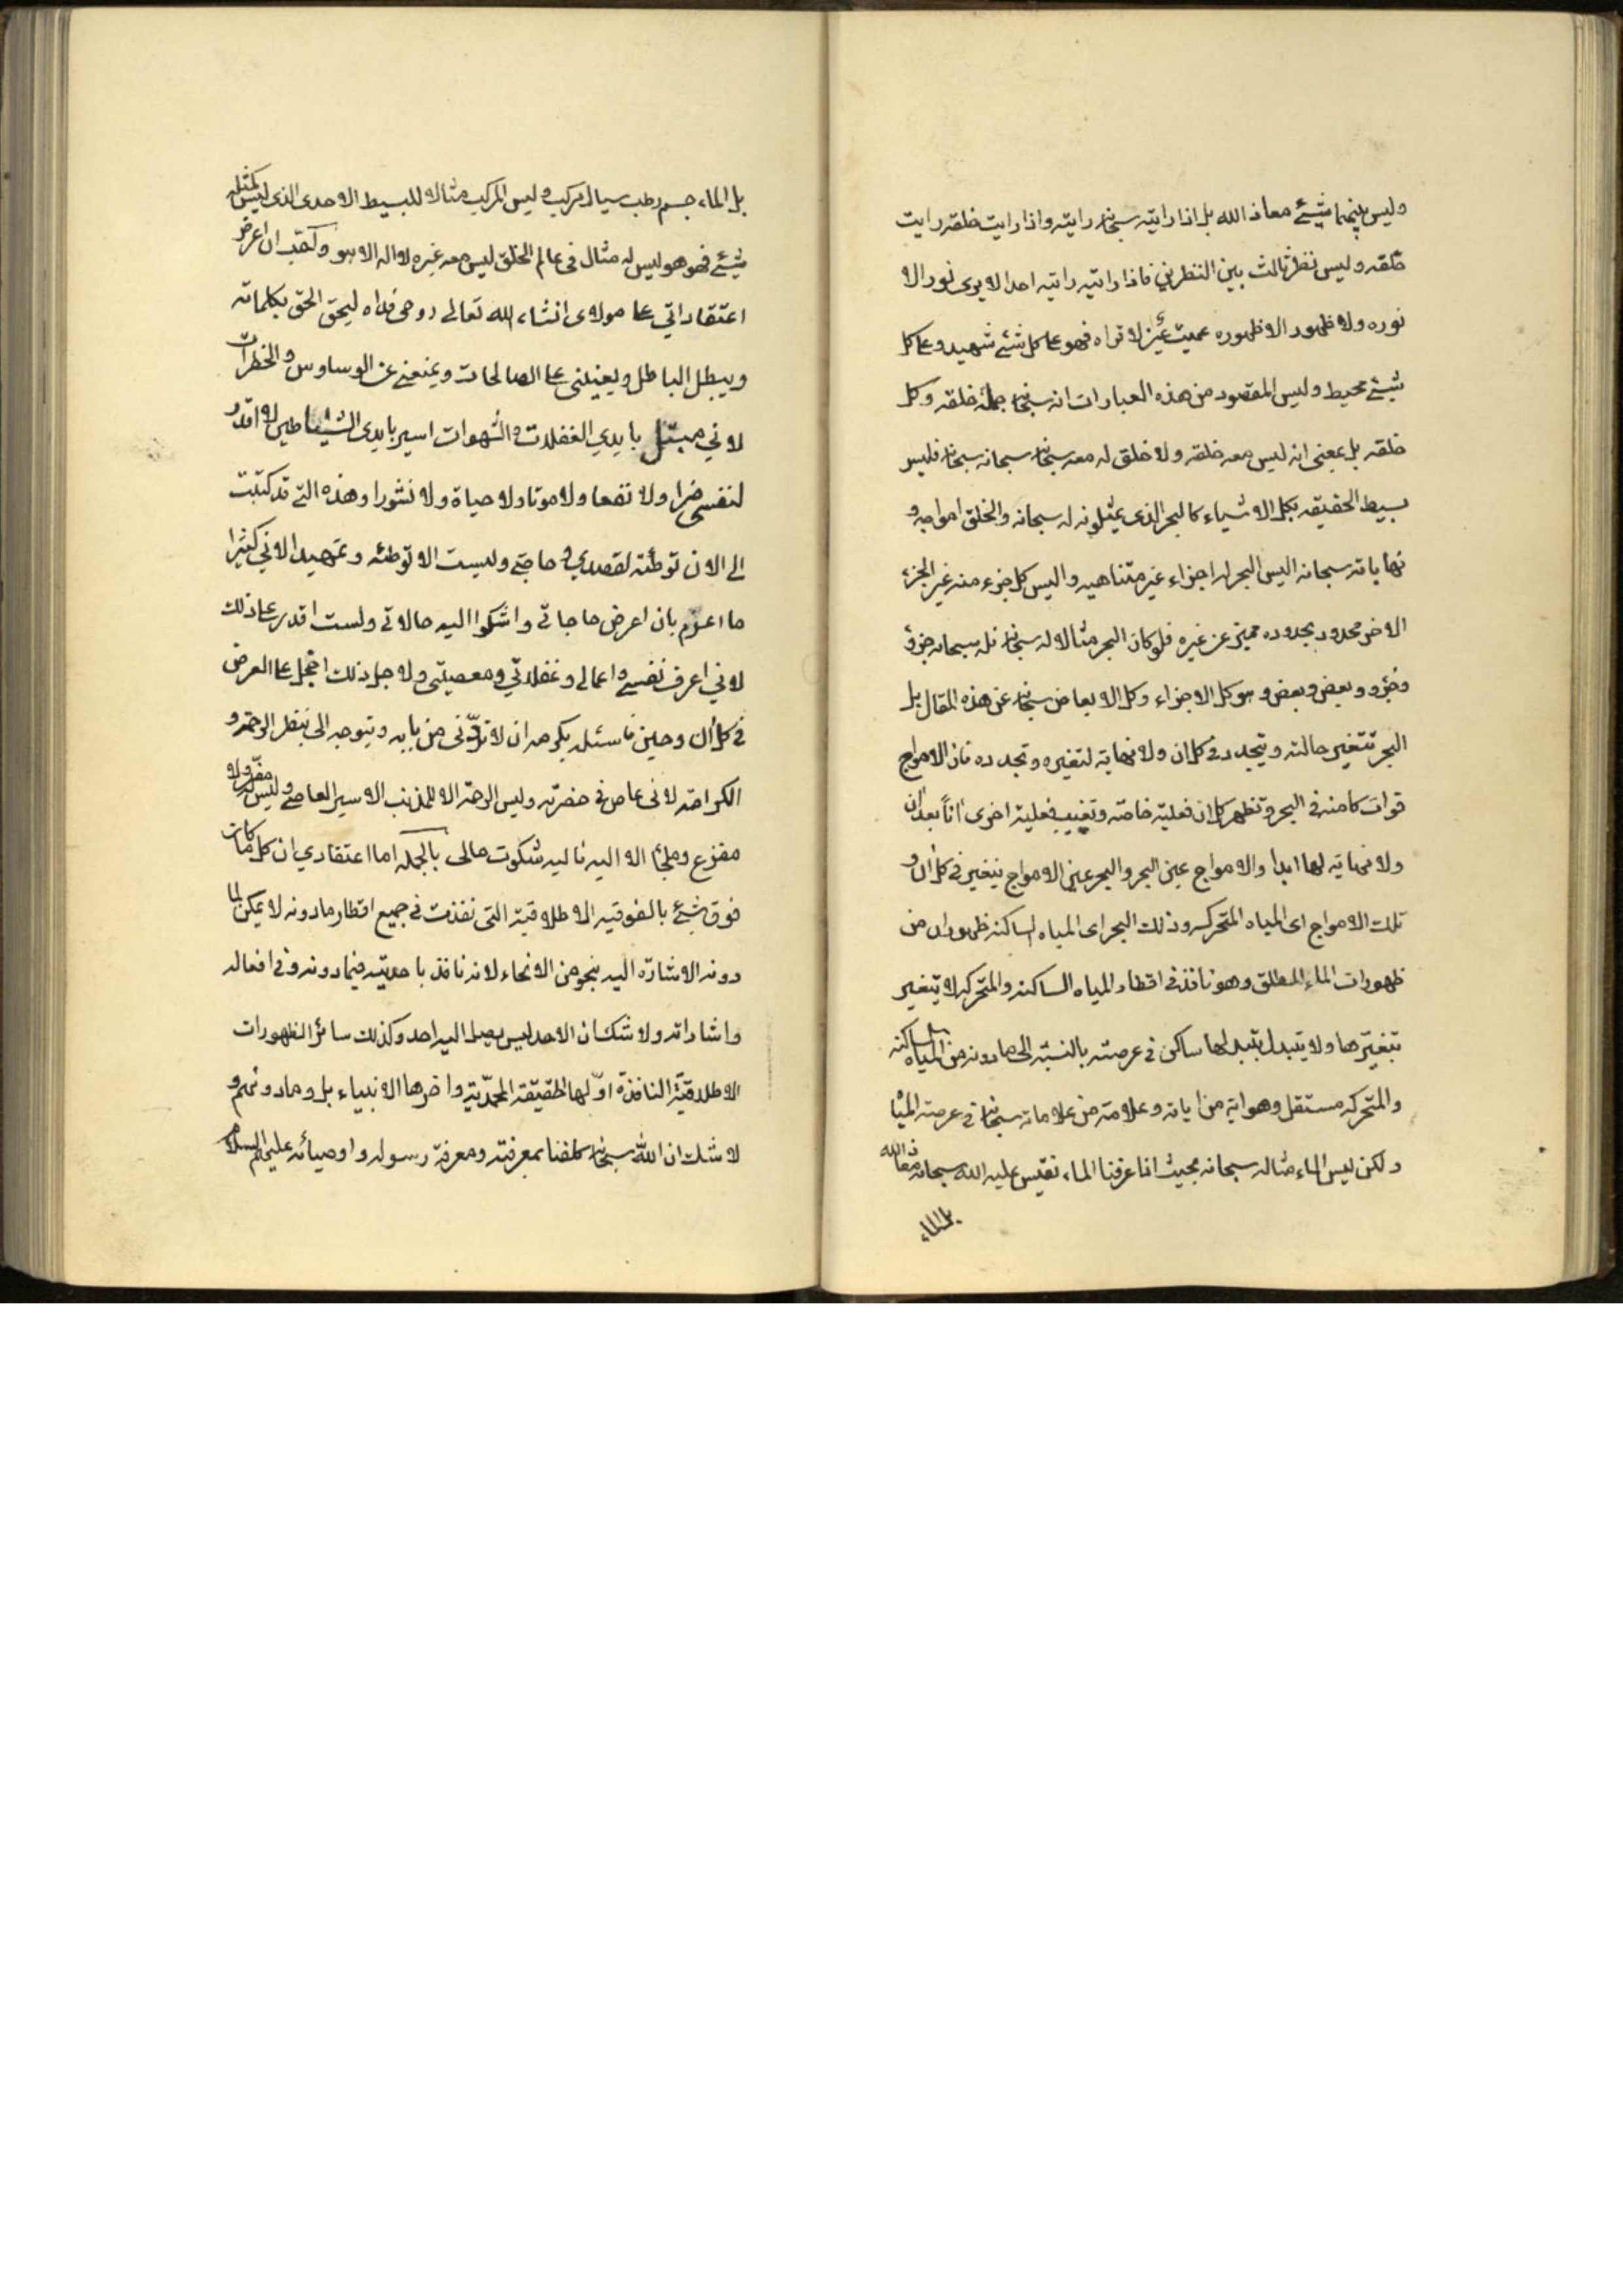 وليس بينهما شيئ معاذ الله بل اذا رايته سبحانه رايته واذا رايت خلقه رايت
خلقه وليس نظر ثالث بين النظرين فاذا رايته رايته احدا لا يرى نور الا
نوره ولا ظهور الا ظهوره عميت عين لا تراه فهو على كل شئ شهيد وعلى كل
شيئ محيط وليس المقصود من هذه العبارات انه سبحانه جملة خلقه وكل
خلقه بل بمعنى انه ليس معه خلقه ولا خلق له معه سبحانه سبحانه سبحانه فليس
بسيط الحقيقه بكل الاشياء كالبحر الذى يمثلونه له سبحانه والخلق امواجه و
نهاياته سبحانه اليس البحر له اجزاء غير متناهيه واليس كل جزء منه غير الجزء
الاخر محدود بحدوده مميز عن غيره فلو كان البحر مثالا له سبحانه فله سبحانه جزؤ
وجزؤ وبعض وبعض وهو كل الاجزاء وكل الابعاض سبحانه عن هذه المقال بل
البحر تتغير حالته ويتجدد فى كل ان ولا نهاية لتغيره وتجدده فان الامواج
قوات كامنه فى البحر وتظهر كل ان فعلية خاصة وتغيب فعلية اخرى اناً بعد ان
ولا نهاية لها ابدا والامواج عين البحر والبحر عين الامواج يتغير فى كل ان و
تلك الامواج اى المياه المتحركه وذلك البحر اى المياه الساكنه ظهوران من
ظهورات الماء المطلق وهو نافذ فى اقطار المياه الساكنه والمتحركه لا يتغير
بتغيرها ولا يتبدل بتبدلها ساكن فى عرصته بالنسبة الى ما دونه من المياه الساكنه
والمتحركه مستقل وهو اية من اياته وعلامة من علاماته سبحانه فى عرصة المياه
ولكن ليس الماء مثاله سبحانه بحيث اذا عرفنا الماء نقيس عليه الله سبحانه معاذ الله
بل الماء
بل الماء جسم رطب سيال مركب وليس المركب مثالا للبسيط الاحدى الذى ليس كمثله
شيئ فهو هو ليس له مثال فى عالم الخلق ليس معه غيره لا اله الا هو واحب ان اعرض
اعتقاداتي على مولاى انشاء الله تعالى روحى فداه ليحق الحق بكلماته
ويبطل الباطل ويعيننى على الصالحات ويمنعنى عن الوساوس والخطرات
لاني مبتلى بايدي الغفلات والشهوات اسير بايدى الشياطين لا اقدر
لنفسى ضرا ولا نفعا ولا موتا ولا حياة ولا نشورا وهذه التى قد كتبت
الى الان توطئة لقصدي وحاجتى وليست الا توطئه وتمهيدا لاني كثيرا
ما اعزم بان اعرض حاجاتى واشكوا اليه حالاتى ولست اقدر على ذلك
لاني اعرف نفسى واعمالى وغفلاتي ومعصيتى ولاجل ذلك اخجل على العرض
فى كل ان وحين فاسئله بكرمه ان لا تردنى من بابه ويتوجه الى بنظر الرحمة و
الكرامة لانى عاص فى حضرته وليس الرحمة الا للمذنب الاسير العاصى وليس له مفر ولا
مفزع وملجأ الا اليه فاليه شكوت حالى بالجمله اما اعتقادي ان كل ما كان
فوق شيئ بالفوقيه الاطلاقية التى نفذت فى جميع اقطار ما دونه لا يمكن لما
دونه الاشارة اليه بنحو من الانحاء لانه نافذ باحديته فيما دونه وفى افعاله
واشاراته ولا شك ان الاحد ليس يصل اليه احد وكذلك سائر الظهورات
الاطلاقية النافذة اوّلها الحقيقة المحمدية واخرها الانبياء بل وما دونهم و
لا شك ان الله سبحانه كلفنا بمعرفته ومعرفة رسوله واوصيائه عليهم السلام